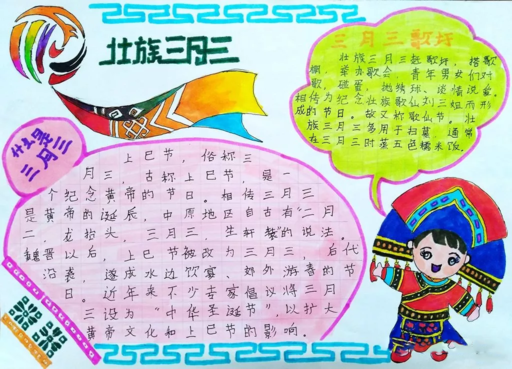 壮族三月三
三月三歌圩
壮族三月三赶歌圩，搭歌
棚，举办歌会，青年男女们对
歌、碰蛋、抛绣球、谈情说爱。
相传为纪念壮族歌仙刘三姐而形
成的节日。故又称歌仙节。壮
族三月三多用于扫墓，通常
在三月三时蒸五色糯米饭。
三月三
上巳节，俗称三
月三，古称上巳节，是一
个纪念黄帝的节日。相传三月三
是黄帝的诞辰，中原地区自古有“二月
二，龙抬头，三月三，生轩辕”的说法。
魏晋以后，上巳节被改为三月三，后代
沿袭，遂成水边饮宴、郊外游春的节
日。近年来不少专家倡议将三月
三设为“中华圣诞节”，以扩大
黄帝文化和上巳节的影响。